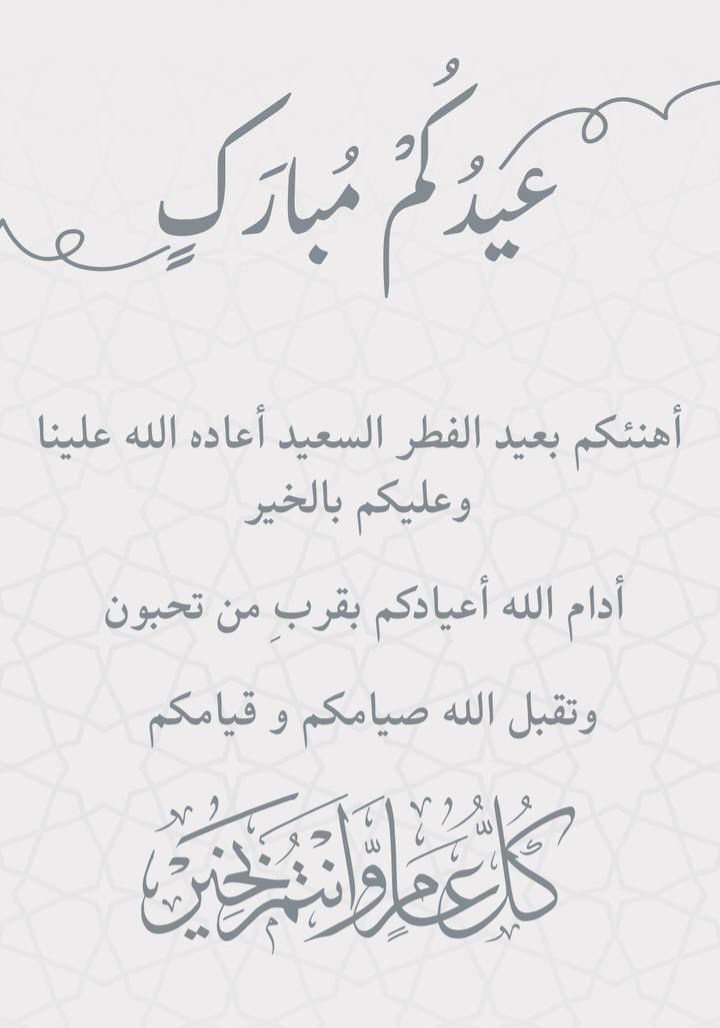 عِيدُكُمْ مُبارَكٍ
أهنئكم بعيد الفطر السعيد أعاده الله علينا
وعليكم بالخير
أدام الله أعيادكم بقربِ من تحبون
وتقبل الله صيامكم و قيامكم
كُلُّ عَامٍ وَّأَنْتُمْ بِخَيْرٍ